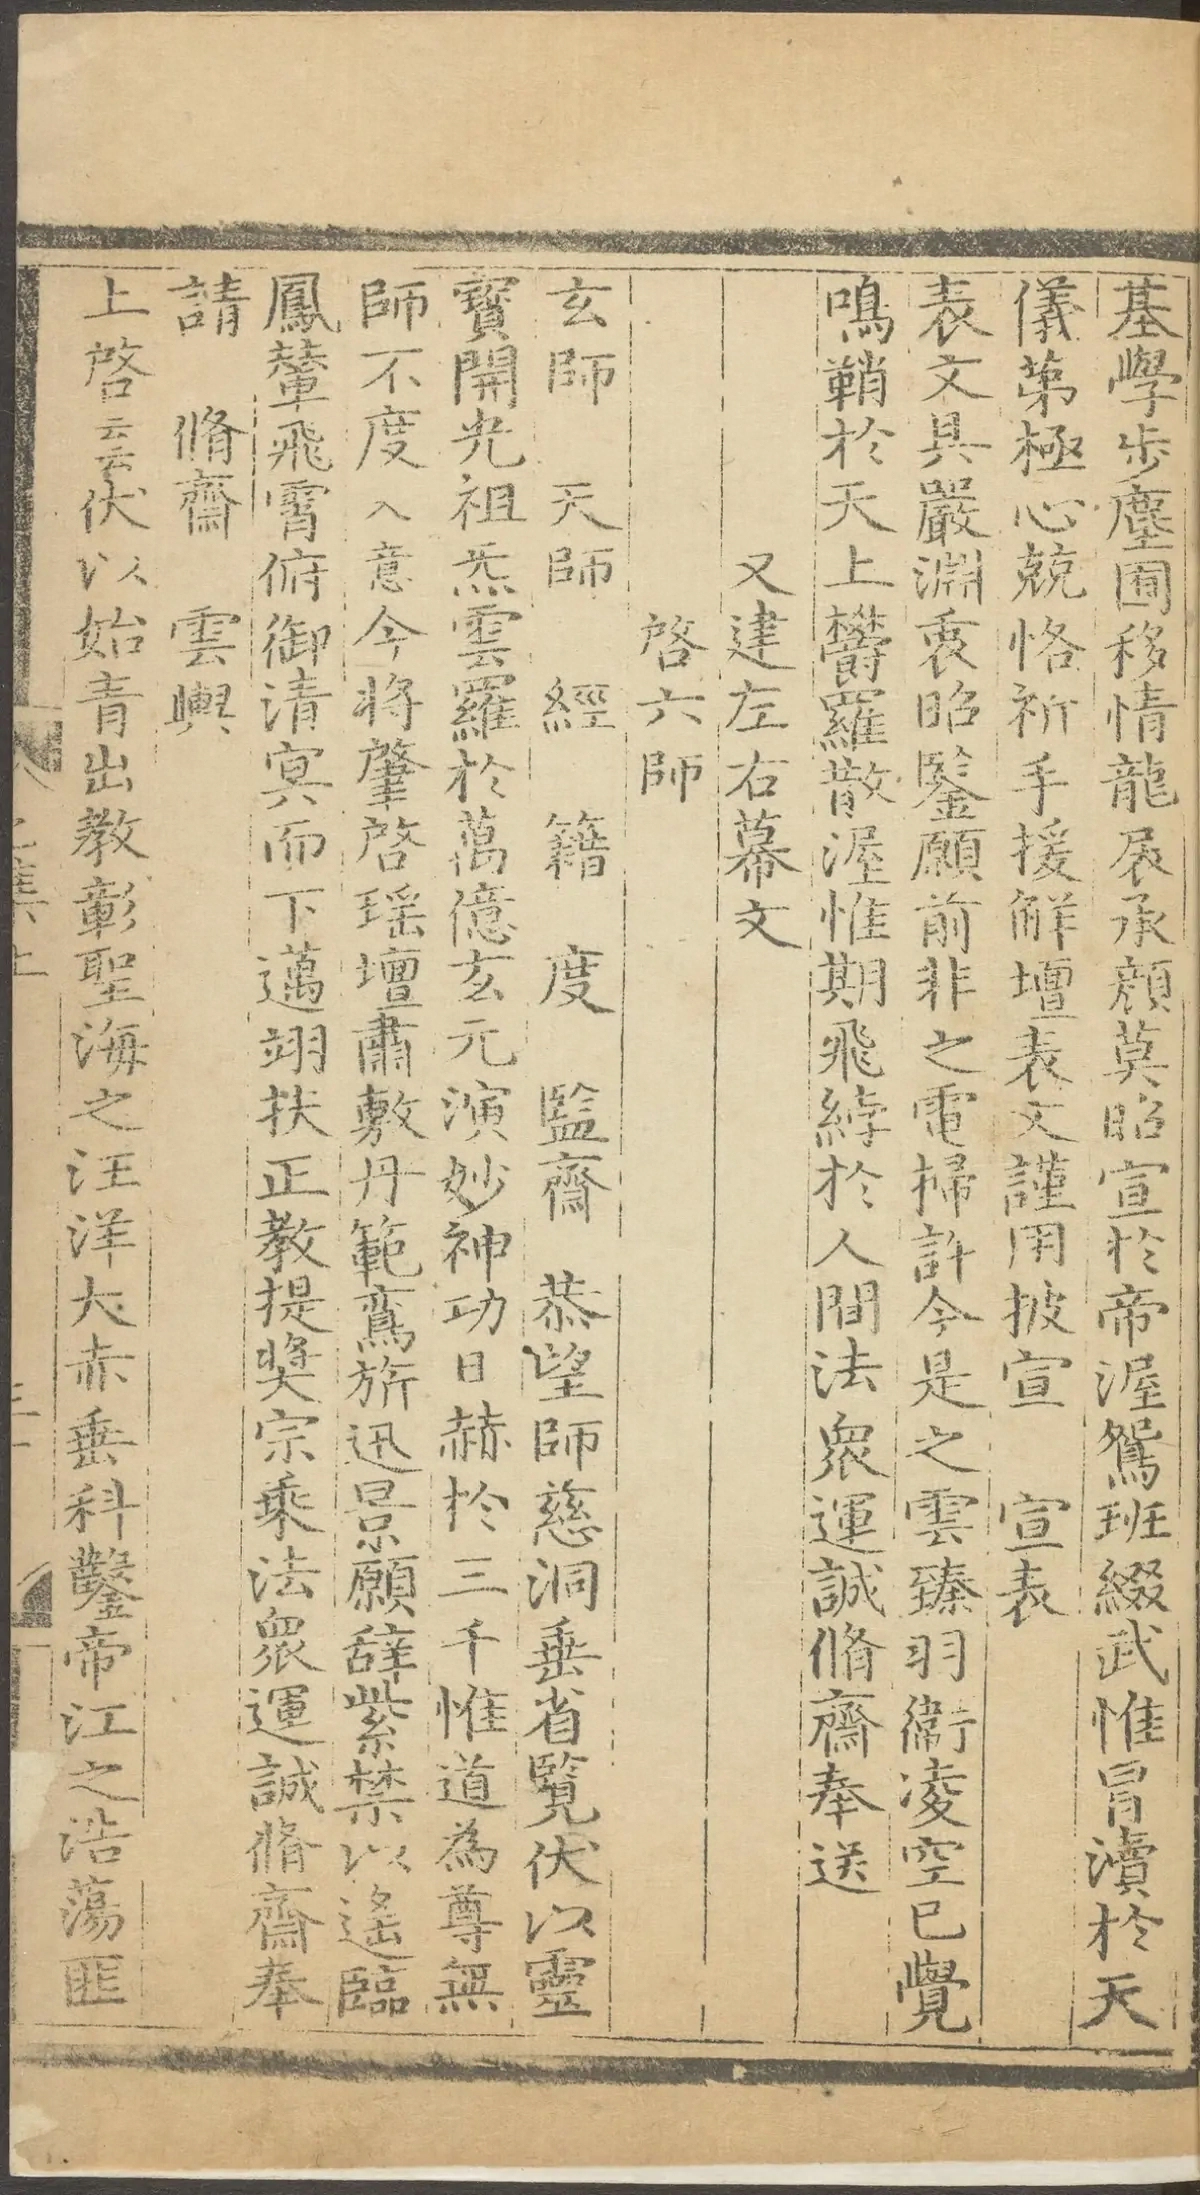 基學步塵圃移情龍扆承顏莫昭宣於帝渥鴛班綴武惟冒瀆於天
儀第極心兢恪祈手援觧壇表文謹用披宣　宣表
表文具嚴淵衷昭鑒願前非之電掃許今是之雲臻羽衞凌空已覺
鳴鞘於天上欝羅散渥惟期飛綍於人間法衆運誠脩齋奉送
又建左右幕文
啓六師
玄師　天師　經　籍　度　監齋　恭望師慈洞垂省覽伏以靈
寳開光祖炁雲羅於萬億玄元演妙神功日赫於三千惟道為尊無
師不度入意今將肇啓瑶壇肅敷丹範鸞旂迅景願辭紫禁以遙臨
鳳輦飛霄俯御清冥而下邁翊扶正教提奬宗乘法衆運誠脩齋奉
請　脩齋　雲輿
上啓云云伏以始青出教彰聖海之汪洋大赤垂科鑿帝江之浩蕩匪